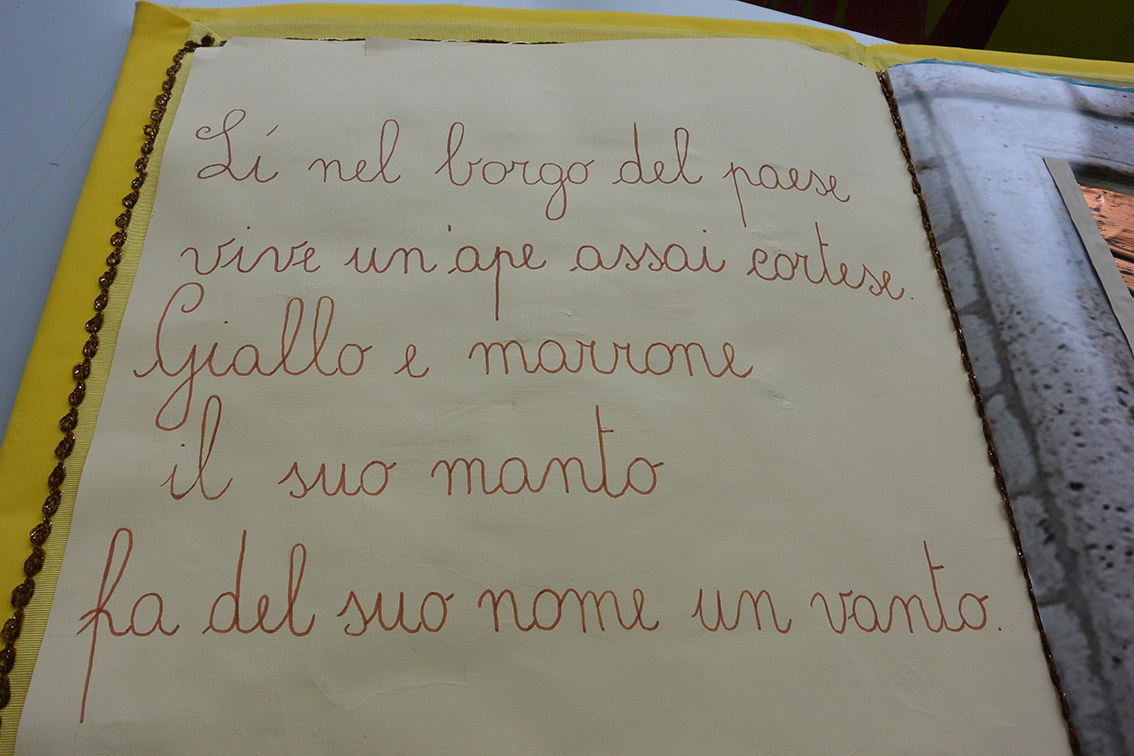 Lí nel borgo del paese
vive un'ape assai cortese.
Giallo e marrone
il suo manto
fa del suo nome un vanto.